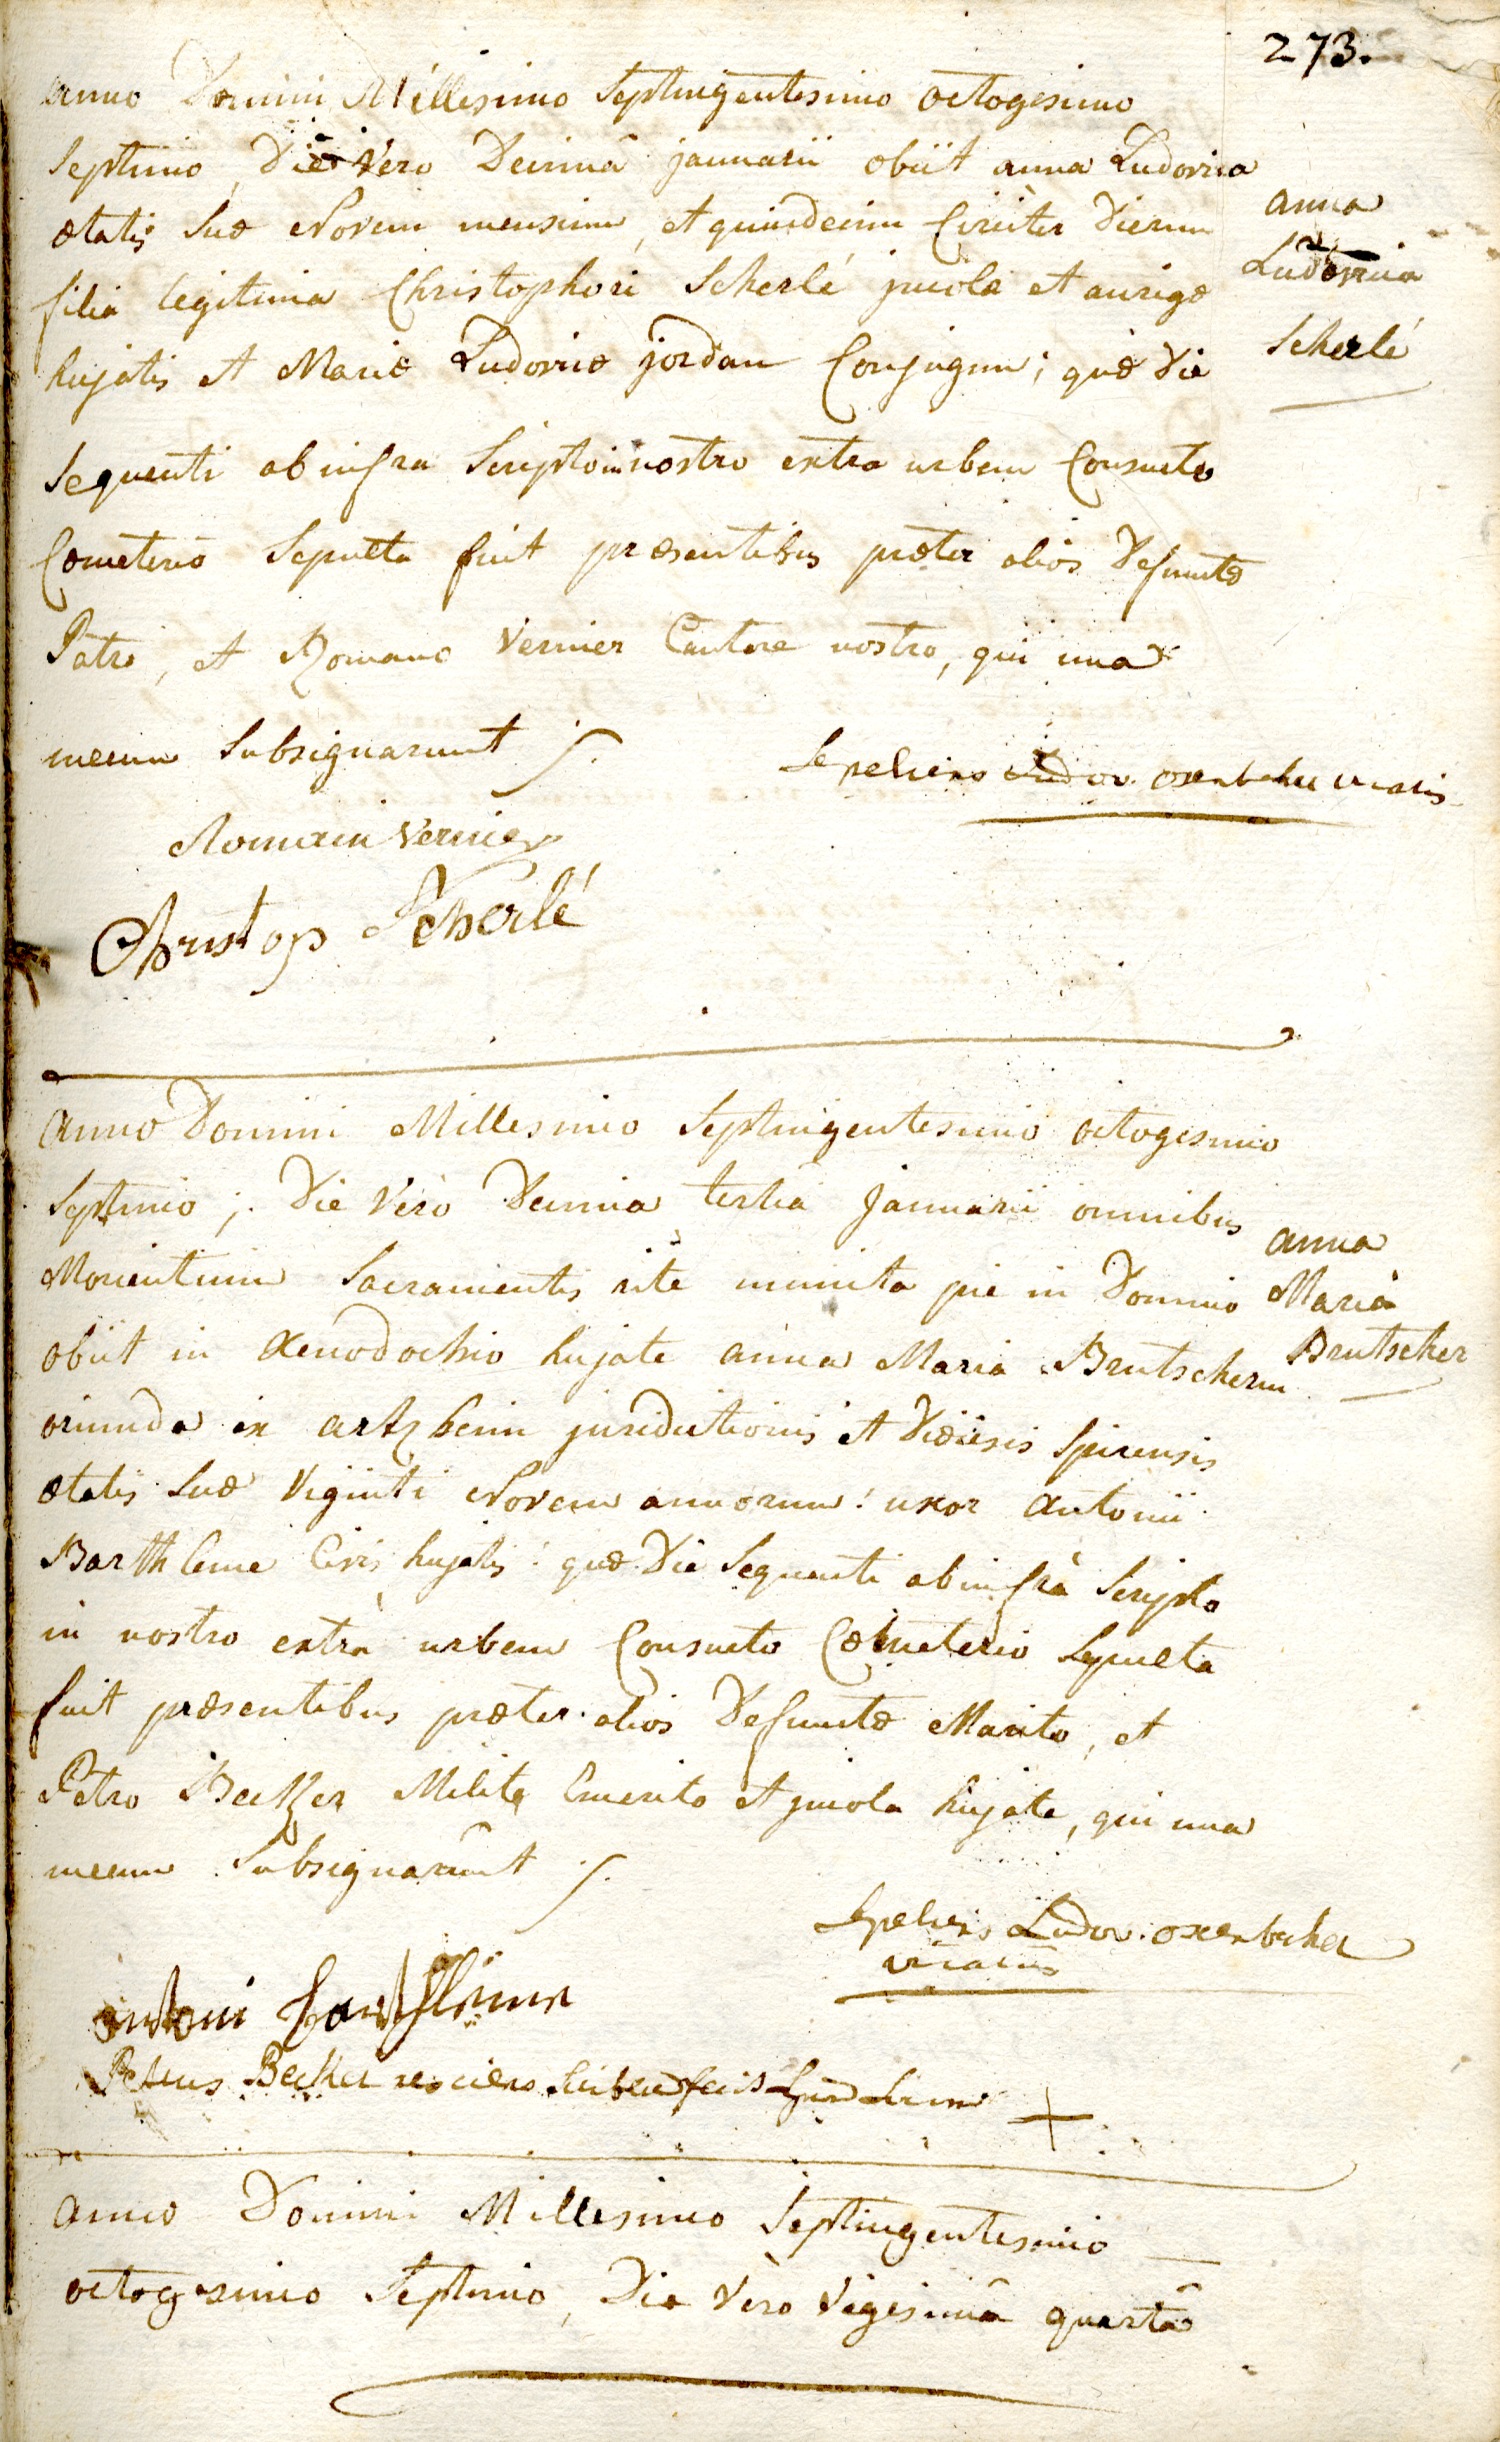 273.
anno Domini Millesimo Septingentesimo octogesimo
Septimo, Die Vero Decimâ januarii obiit anna Ludovica
ætatis suæ Novem mensium, et quindecim Circiter Dierum
filia legitima Christophori Scherlé jncolæ et aurigæ
hujatis et Mariæ Ludovicæ jordan Conjugum; quæ Die
sequenti ab infra Scripto in nostro extra urbem Consueto
Cœmeterio Sepulta fuit præsentibus præter alios Defunctæ
Patre, et Romano Vernier Cantore nostro, qui una
mecum subsignarunt ./.
anna
Ludovica
Scherlé
Sepeliens Ludov. oxenbaher vicarius
Romain Vernier
Christop Scherlé
anno Domini Millesimo Septingentesimo octogesimo
Septimo; Die Vero Decima tertia Januarii omnibus
Morientium Sacramentis rite munita pie in Domino
obiit in Xenodochio hujate anna Maria Brutscherin
oriunda ex artzheim jurisdictionis et Diœcesis Spirensis
ætatis suæ Viginti Novem annorum: uxor antonii
Barthleme Civis hujatis: quæ Die Sequenti ab infrà Scripto
in nostro extrà urbem Consueto Cœmeterio Sepulta
fuit præsentibus præter alios Defunctæ Marito, et
Petro Becker Milite Emerito et jncola hujate, qui una
mecum Subsignarunt ./.
anna
Maria
Brutscher
Sepeliens Ludov. oxenbaher
vicarius
antoni barthleme
Petrus Becker nesciens scribere fecit
+
anno Domini Millesimo Septingentesimo
octogesimo Septimo, Die Vero Vigesimâ quartâ